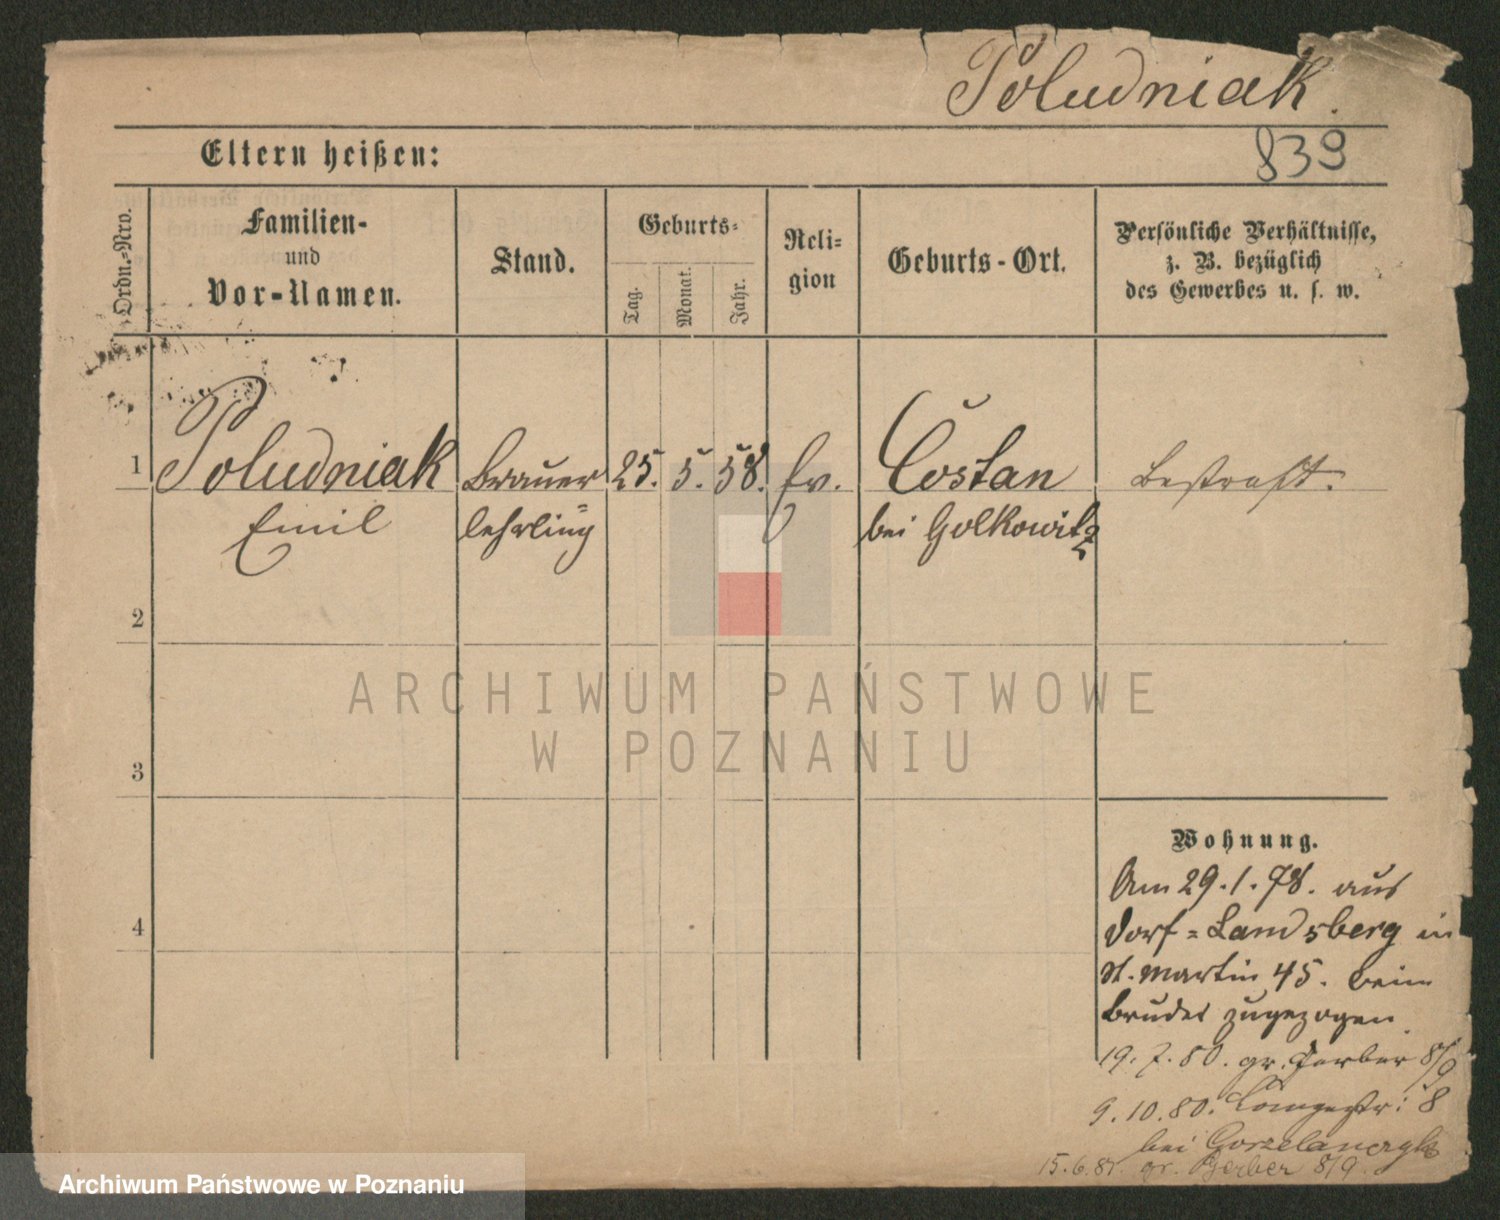 Poludniak.
839
Eltern heißen:
Ordn.-Nro.
Familien-
und
Vor-Namen.
Stand.
Geburts-
Tag.
Monat.
Jahr.
Reli-
gion
Geburts-Ort.
Persönliche Verhältnisse,
z. B. bezüglich
des Gewerbes u. s. w.
1 Poludniak Brauer 25. 5. 58. Ev. Costan Bestraft.
Emil lehrling bei Golkowitz
2
3
4
Wohnung.
Am 29.1.78. aus
Dorf-Landsberg in
St. Martin 45. beim
Bruder zugezogen.
19.7.80. gr. Gerber 8/9
9.10.80. Langestr: 8
bei Gorzelanczyk
15.6.81. gr. Gerber 8/9.
ARCHIWUM PAŃSTWOWE
W POZNANIU
Archiwum Państwowe w Poznaniu